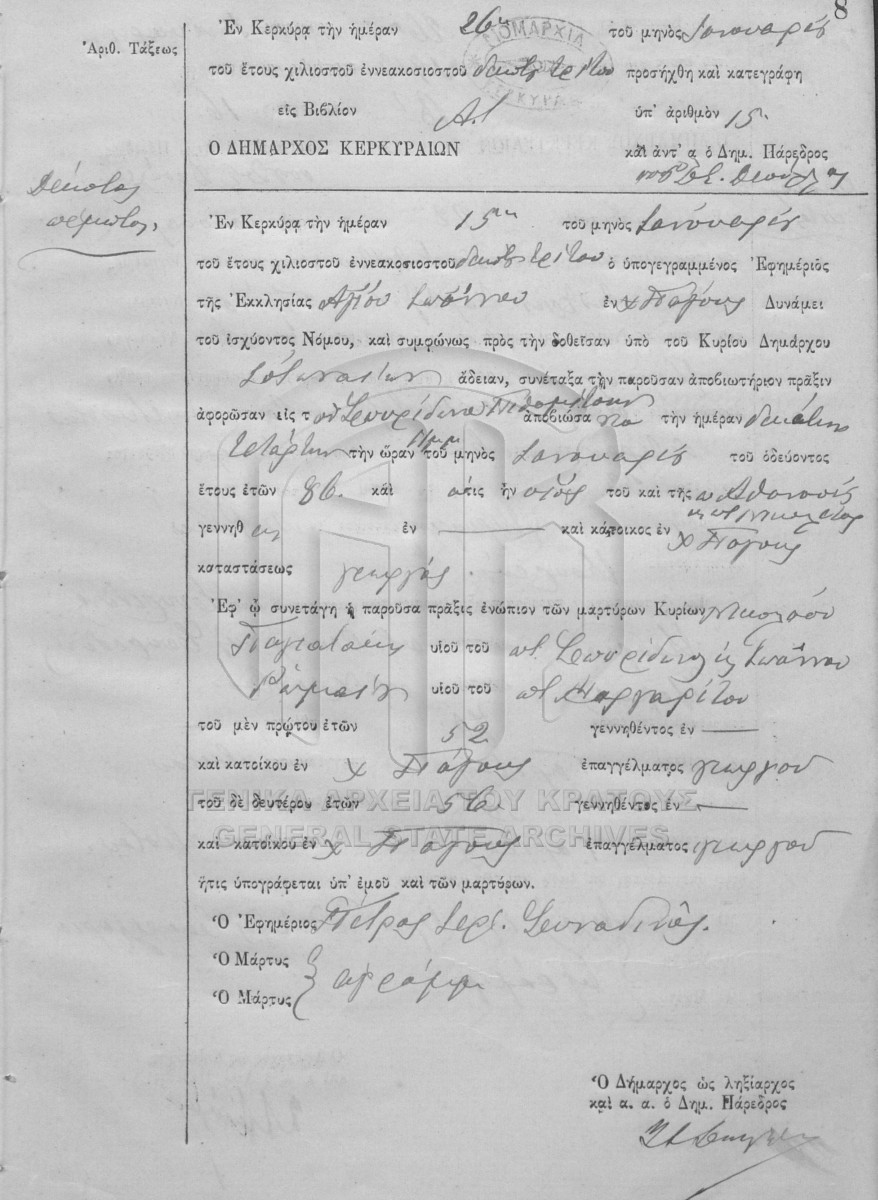 8
Ἐν Κερκύρᾳ τὴν ἡμέραν 26ην τοῦ μηνὸς Ἰανουαρίου
Ἀριθ. Τάξεως
τοῦ ἔτους χιλιοστοῦ ἐννεακοσιοστοῦ δεκάτου τρίτου προσήχθη καὶ κατεγράφη
εἰς Βιβλίον Α.1 ὑπ' ἀριθμὸν 15
Ο ΔΗΜΑΡΧΟΣ ΚΕΡΚΥΡΑΙΩΝ καὶ ἀντ' α ὁ Δημ. Πάρεδρος
Δέκατος
πέμπτος
Ἐν Κερκύρᾳ τὴν ἡμέραν 15ην τοῦ μηνὸς Ἰανουαρίου
τοῦ ἔτους χιλιοστοῦ ἐννεακοσιοστοῦ δεκάτου τρίτου ὁ ὑπογεγραμμένος Ἐφημέριὸς
τῆς Ἐκκλησίας Ἁγίου Ἰωάννου ἐν χ Πάγους Δυνάμει
τοῦ ἰσχύοντος Νόμου, καὶ συμφώνως πρὸς τὴν δοθεῖσαν ὑπὸ τοῦ Κυρίου Δημάρχου
ἄδειαν, συνέταξα τὴν παροῦσαν ἀποβιωτήριον πρᾶξιν
ἀφορῶσαν εἰς τ ὸν Σπυρίδωνα ἀποβιώσα ντα τὴν ἡμέραν δεκάτην
τετάρτην τὴν ὥραν π.μ. τοῦ μηνὸς Ἰανουαρίου τοῦ ὁδεύοντος
ἔτους ἐτῶν 86 καὶ ὅστις ἦν υἱὸς τοῦ καὶ τῆς π Ἀθανασίου
γεννηθ εὶς ἐν — καὶ κάτοικος ἐν χ Πάγους
καταστάσεως γεωργός.
Ἐφ' ᾧ συνετάγη ἡ παροῦσα πρᾶξις ἐνώπιον τῶν μαρτύρων Κυρίων Νικολάου
υἱοῦ τοῦ ποτ. Σπυρίδωνος & Ἰωάννου
υἱοῦ τοῦ ποτ Μαργαρίτου
τοῦ μὲν πρώτου ἐτῶν 52 γεννηθέντος ἐν —
καὶ κατοίκου ἐν χ Πάγους ἐπαγγέλματος γεωργοῦ
τοῦ δὲ δευτέρου ἐτῶν 56 γεννηθέντος ἐν —
καὶ κατοίκου ἐν χ Πάγους ἐπαγγέλματος γεωργοῦ
ἥτις ὑπογράφεται ὑπ' ἐμοῦ καὶ τῶν μαρτύρων.
Ὁ Ἐφημέριος Πέτρος Ἱερ. Συναδινός.
Ὁ Μάρτυς
Ὁ Μάρτυς } ἀγράμμ
Ὁ Δήμαρχος ὡς ληξίαρχος
καὶ α. α. ὁ Δημ. Πάρεδρος
ΓΕΝΙΚΑ ΑΡΧΕΙΑ ΤΟΥ ΚΡΑΤΟΥΣ
GENERAL STATE ARCHIVES